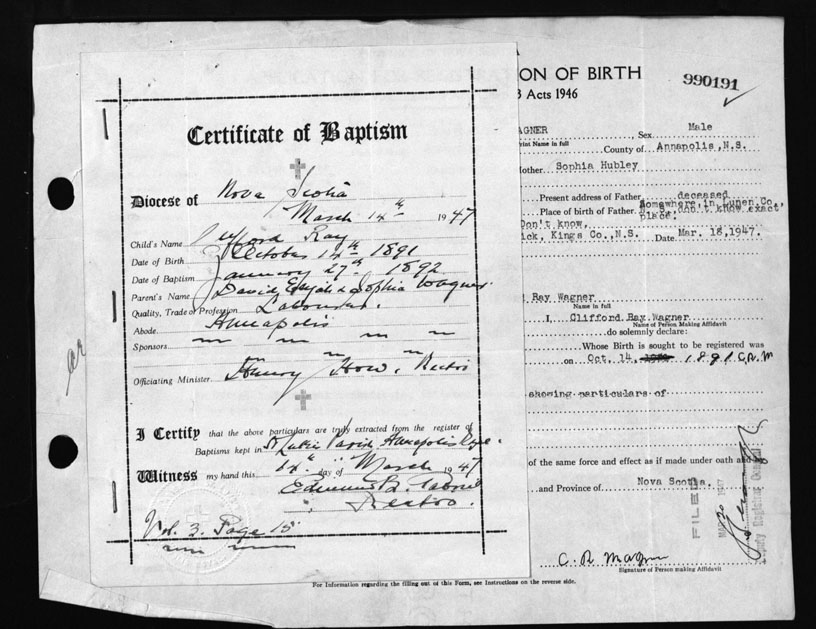 Certificate of Baptism
Diocese of Nova Scotia
March 14th 1947
Child's Name Clifford Ray
Date of Birth October 14th 1891
Date of Baptism January 27th 1892
Parent's Name David Elijah & Sophia Wagner
Quality, Trade or Profession Labourer.
Abode Annapolis
Sponsors
Officiating Minister Henry How, Rector
I Certify that the above particulars are truly extracted from the register of
Baptisms kept in St Luke's Parish Annapolis Royal.
Witness my hand this 14th day of March 1947
Rector.
Vol. 3. Page 15
ON OF BIRTH
990191
Acts 1946
AGNER Sex Male
rint Name in full
County of Annapolis, N.S.
other Sophia Hubley
Present address of Father deceased
Place of birth of Father Somewhere in Lunen Co., don't know exact place.
Don't know,
ick, Kings Co., N.S. Date Mar. 18, 1947.
Ray Wagner
Name in full
I, Clifford Ray Wagner
Name of Person Making Affidavit
do solemnly declare:
Whose Birth is sought to be registered was
on Oct. 14, 1891 C.R.W
showing particulars of
of the same force and effect as if made under oath and
and Province of Nova Scotia.
FILED
C. R. Wagner
Signature of Person making Affidavit
For Information regarding the filling out of this Form, see Instructions on the reverse side.